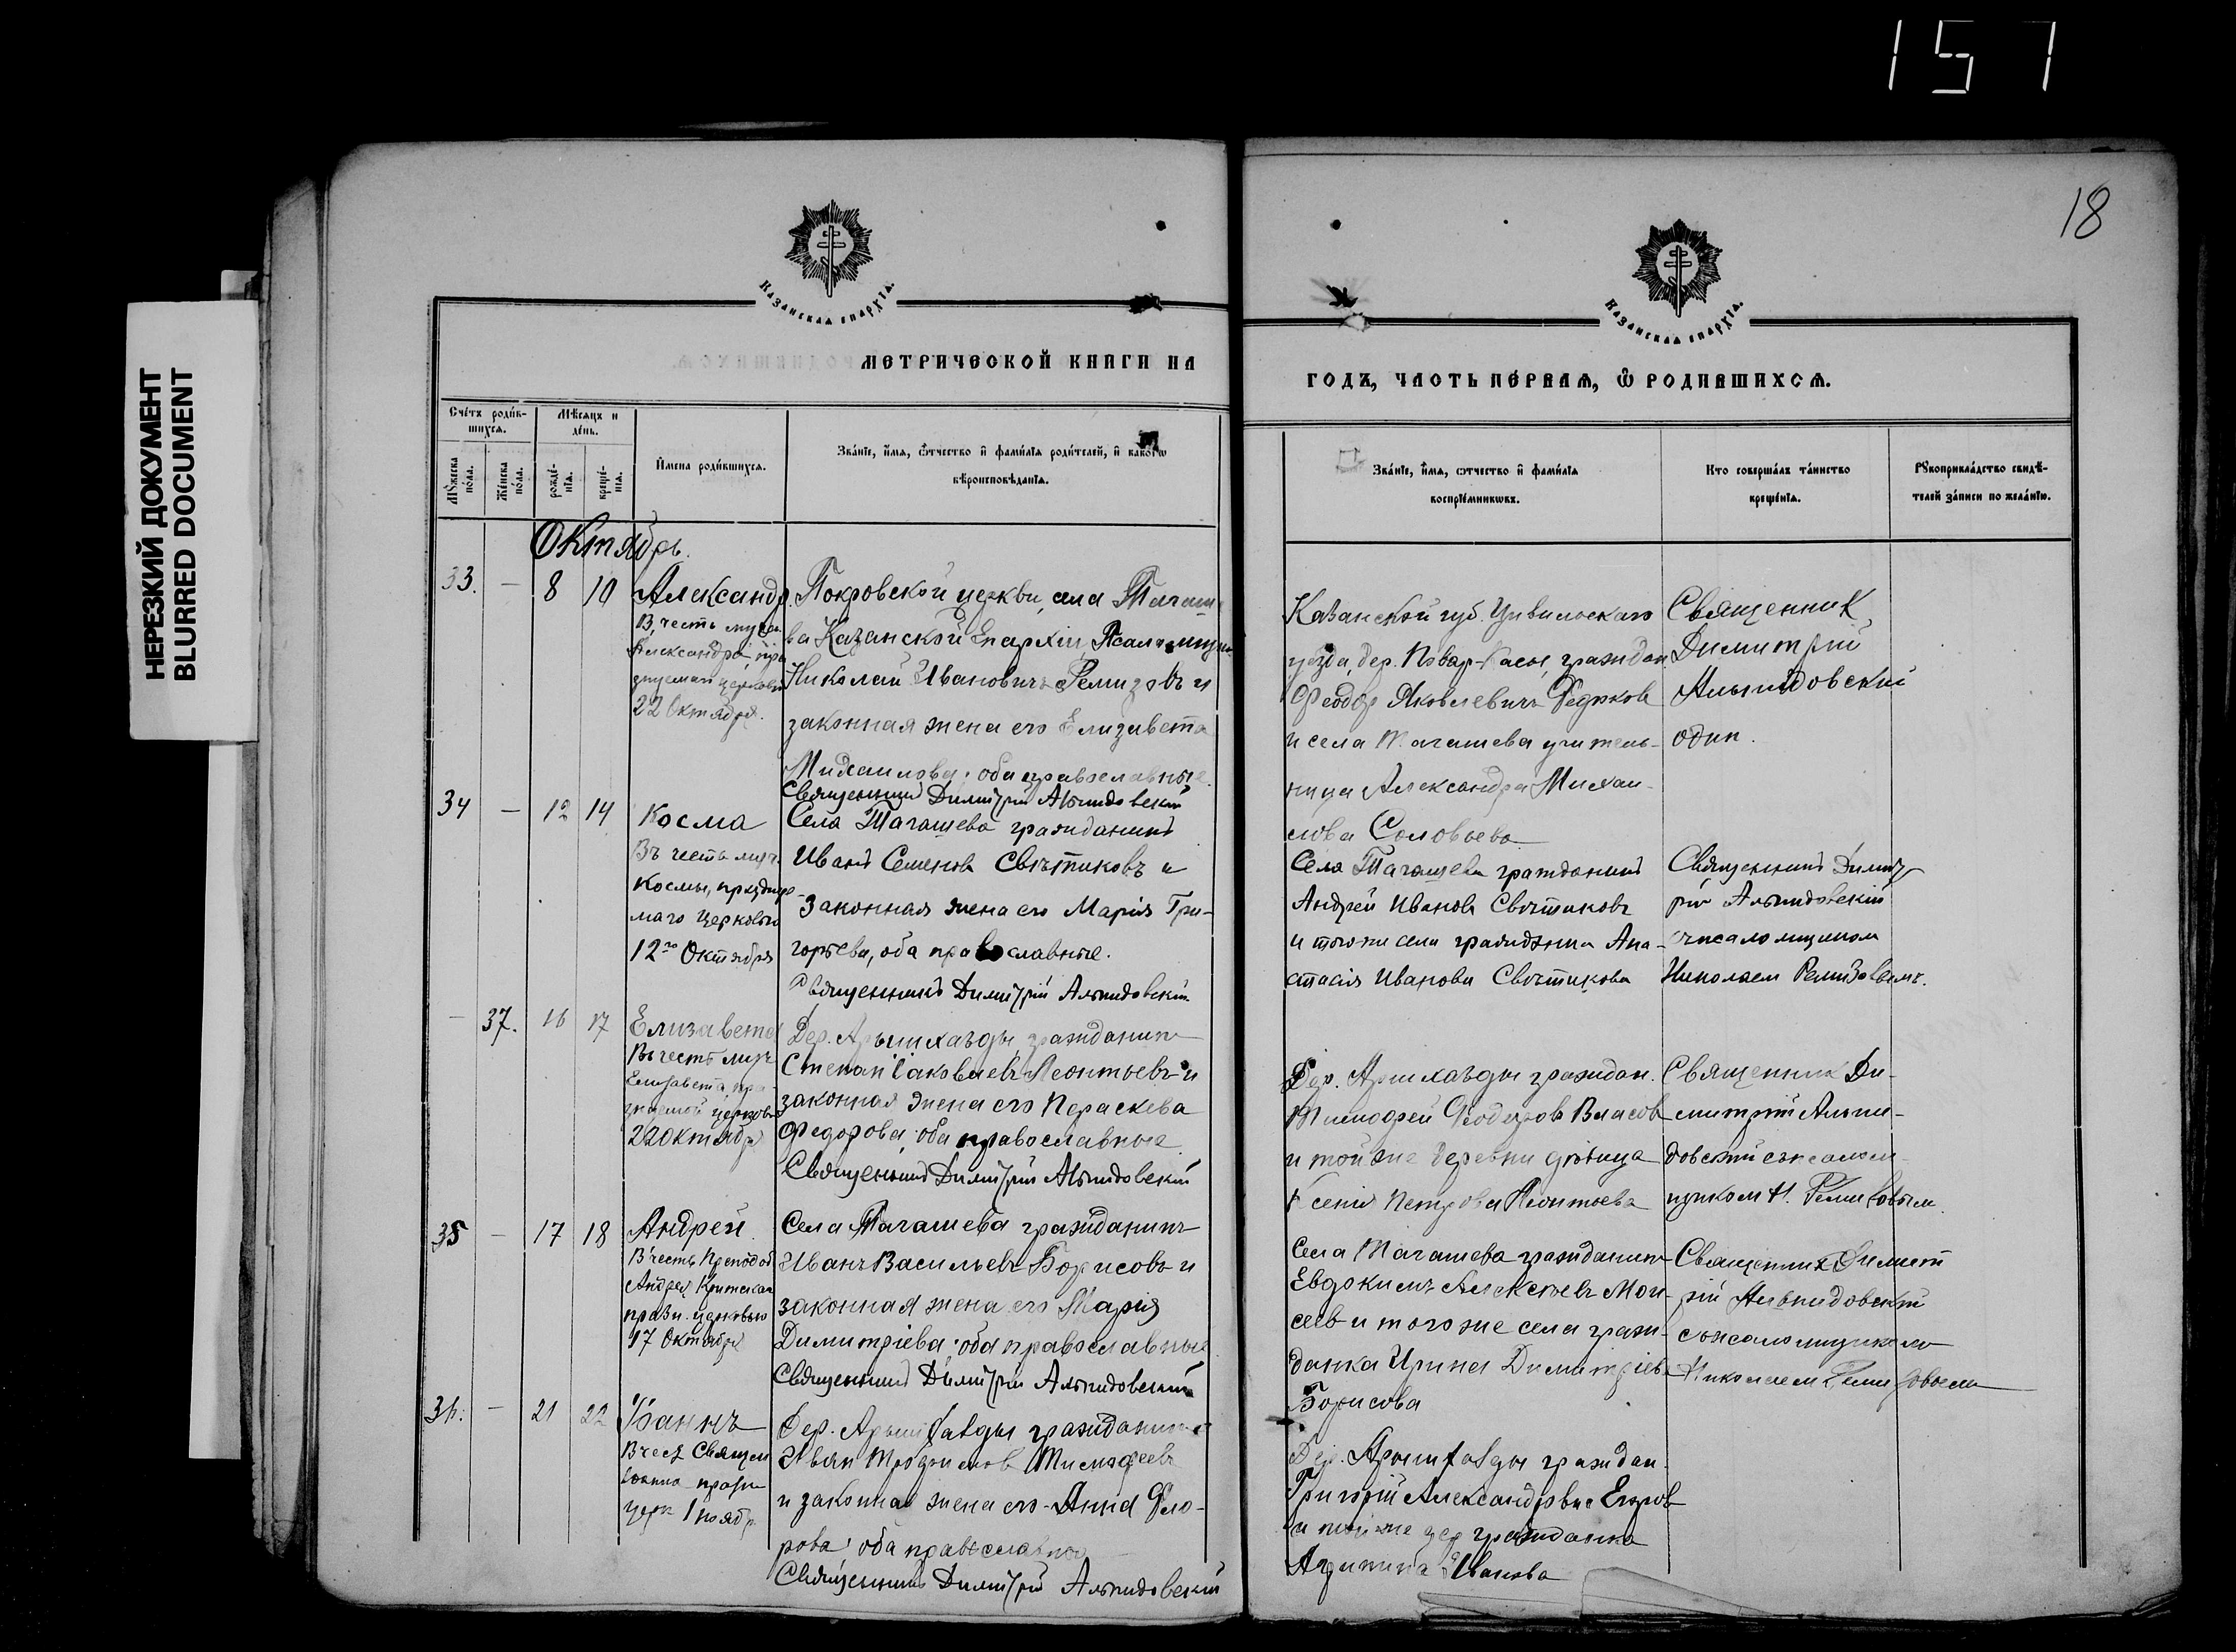 157
18
НЕРЕЗКИЙ ДОКУМЕНТ
BLURRED DOCUMENT
КАЗАНСКАЯ ЕПАРХІЯ.
МЕТРИЧЕСКОЙ КНИГИ НА
Счётъ роди́в-
шихся.
Мѣсяцъ и
де́нь.
Мꙋжеска
по́ла.
Же́нска
по́ла.
рожде́-
нїѧ.
креще́-
нїѧ.
Имена роди́вшихся.
Зва́нїе, и́мѧ, ѻтчество и фами́лїѧ роди́телей, и како́гѡ
вѣроисповѣданїѧ.
Октябрь.
33. — 8 10 Александр.
В честь муч.
Александра, пра
зднуемаго церковью
22 Октября.
Покровской церкви, села Тагаше
ва Казанской Епархіи, Псаломщик
Николай Ивановичъ Ремизовъ и
законная жена его Елизавета
Михаилова; оба православные.
Священникъ Димитрій Альпидовскій
34 — 12 14 Косма
Въ честь муч.
Космы, празднуе-
маго Церковью
12го Октября
Села Тагашева гражданинъ
Иванъ Семеновъ Свѣтиковъ и
законная жена его Марія Гри-
горьева, оба православные.
Священникъ Димитрій Альпидовскій
— 37. 16 17 Елизавета
Въ честь муч.
Елизавета пра-
знуемой церковью
22 Октября
Дер. Арышхазды гражданинъ
Степан Іаковлевъ Леонтьевъ и
законная жена его Параскева
Федорова; оба православные.
Священникъ Димитрій Альпидовскій
35 — 17 18 Андрей.
В честь Преподоб
Андрея Критскаго
празн. церковью
17 Октября
Села Тагашева гражданинъ
Иванъ Васильевъ Борисовъ и
законная жена его Марія
Димитріева; оба православные
Священникъ Димитрій Альпидовскій
36. — 21 22 Іоаннъ
В честь Священ
Іоанна празн
церк 1 ноябр
Дер. Арышхазды гражданинъ
Иван Тимофеевъ
и законная жена его Анна Фло-
рова; оба православные
Священникъ Димитрій Альпидовскій
КАЗАНСКАЯ ЕПАРХІЯ.
ГОДЪ, ЧАСТЬ ПЕ́РВАЯ, Ѽ РОДИВШИХСЯ.
Зва́нїе, и́мѧ, ѻтчество и фами́лїѧ
воспрїе́мникѡвъ.
Кто соверша́лъ та́инство
креще́нїѧ.
Рꙋкоприкла́дство свидѣ́-
телей за́писи по жела́нїю.
Казанской губ. Цивильскаго
уѣзда, дер. Повар-Касы, граждан.
Феодор Яковлевичъ Федяков
и села Тагашева учитель-
ница Александра Михаи-
лова Соловьева
Священник
Димитрій
Альпидовскій
один.
Села Тагашева гражданинъ
Андрей Иванов Свѣтиковъ
и того же села гражданка Ана-
стасія Иванова Свѣтикова
Священникъ Димит
рій Альпидовскій
с псаломщиком
Николаем Ремизовымъ.
Дер. Арышхазды граждан.
Тимофей Феодоров Власов
и той же деревни дѣвица
Ксенія Петрова Леонтьева
Священник Ди-
митрій Альпи-
довскій с псалом-
щиком Н. Ремизовым.
Села Тагашева гражданинъ
Евдокимъ Алексѣевъ Мои-
сеев и того же села граж-
данка Ирина Димитріева
Борисова
Священник Димит
рій Альпидовскій
с псаломщиком
Николаем Ремизовым
Дер. Арышхазды граждан.
Григорій Александровъ Егоров
и той же дер гражданка
Агрипина Иванова